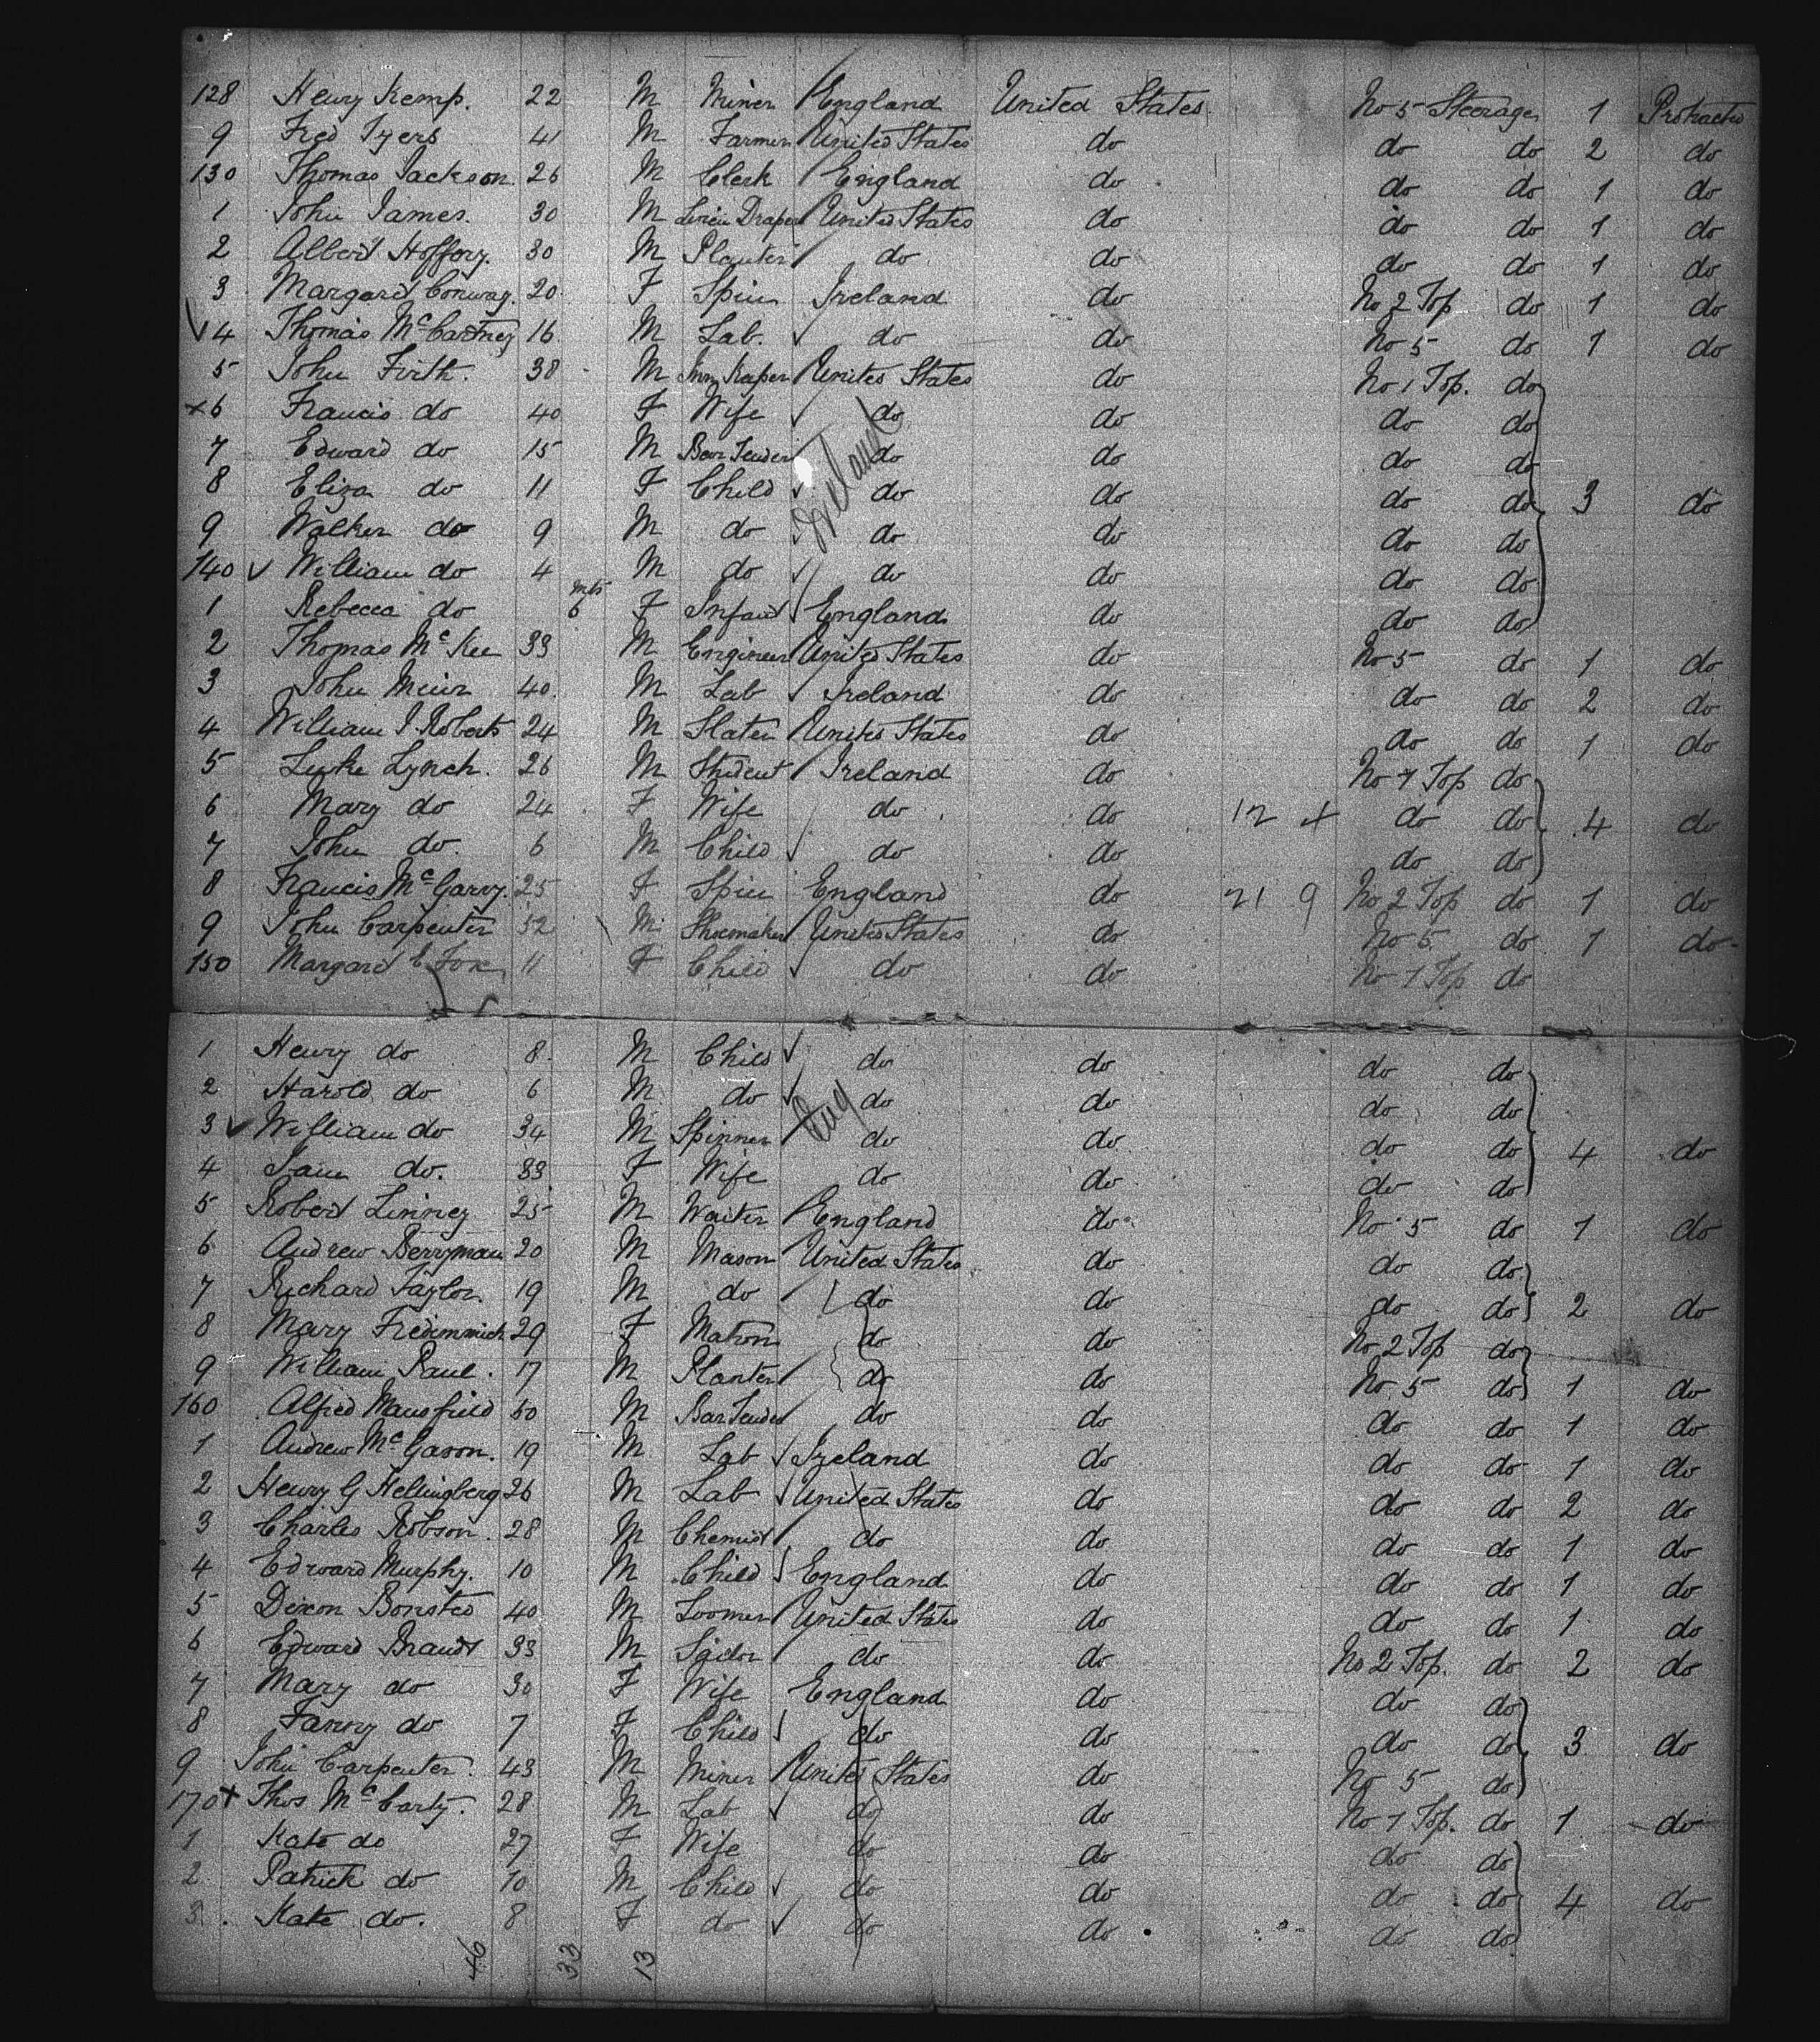 128 Henry Kemp. 22 M Miner England United States No 5 Steerage 1 Protracted
9 Fred Tyers 41 M Farmer United States do do do 2 do
130 Thomas Jackson. 26 M Clerk England do do do 1 do
1 John James. 30 M Linen Draper United States do do do 1 do
2 Albert Hoffory. 30 M Planter do do do do 1 do
3 Margaret Conway. 20 F Spin Ireland do No 2 Top do 1 do
4 Thomas McCartney 16 M Lab. do do No 5 do 1 do
5 John Firth. 38 M Inn Keeper United States do No 1 Top. do
x6 Francis do 40 F Wife do do do do
7 Edward do 15 M Bar Tender do do do do
8 Eliza do 11 F Child Ireland do do do do 3 do
9 Walker do 9 M do do do do do
140 William do 4 M do do do do do
1 Rebecca do mts 6 F Infant England do do do
2 Thomas McKee 33 M Engineer United States do No 5 do 1 do
3 John Muir 40. M Lab Ireland do do do 2 do
4 William J. Roberts 24 M Slater United States do do do 1 do
5 Luke Lynch. 26 M Student Ireland do No 1 Top do
6 Mary do 24 F Wife do do 12 4 do do 4 do
7 John do. 6 M Child do do do do
8 Francis McGarvy. 25 F Spin England do 21 9 No 2 Top do 1 do
9 John Carpenter 52 M Shoemaker United States do No 5 do 1 do
150 Margaret E Fox 11 F Child do do No 1 Top do
1 Henry do 8. M Child do do do do
2 Harold do 6 M do Eng do do do do
3 William do 34 M Spinner do do do do 4 do
4 Jane do. 33 F Wife do do do do
5 Robert Linney 25 M Waiter England do No 5 do 1 do
6 Andrew Berryman 20 M Mason United States do do do
7 Richard Taylor. 19 M do do do do do 2 do
8 Mary 29 F Matron do do No 2 Top do
9 William Paul. 17 M Planter do do No. 5 do 1 do
160 Alfred Mansfield 50 M Bar Tender do do do do 1 do
1 Andrew McGason. 19 M Lab Ireland do do do 1 do
2 Henry G Hellingberg 26 M Lab United States do do do 2 do
3 Charles Robson. 28 M Chemist do do do do 1 do
4 Edward Murphy. 10 M Child England do do do 1 do
5 Dixon Bousted 40 M Loomer United States do do do 1. do
6 Edward Brandt 33 M Sailor do do No 2 Top. do 2 do
7 Mary do 30 F Wife England do do do
8 Fanny do 7 F Child do do do do 3 do
9 John Carpenter. 43 M Miner United States do No 5 do
170 x Thos McCarty. 28 M Lab do do No 1 Top. do 1 do
1 Kate do 27 F Wife do do do do
2 Patrick do 10 M Child do do do do 4 do
3 Kate do. 8 F do do do do do
46 33 13